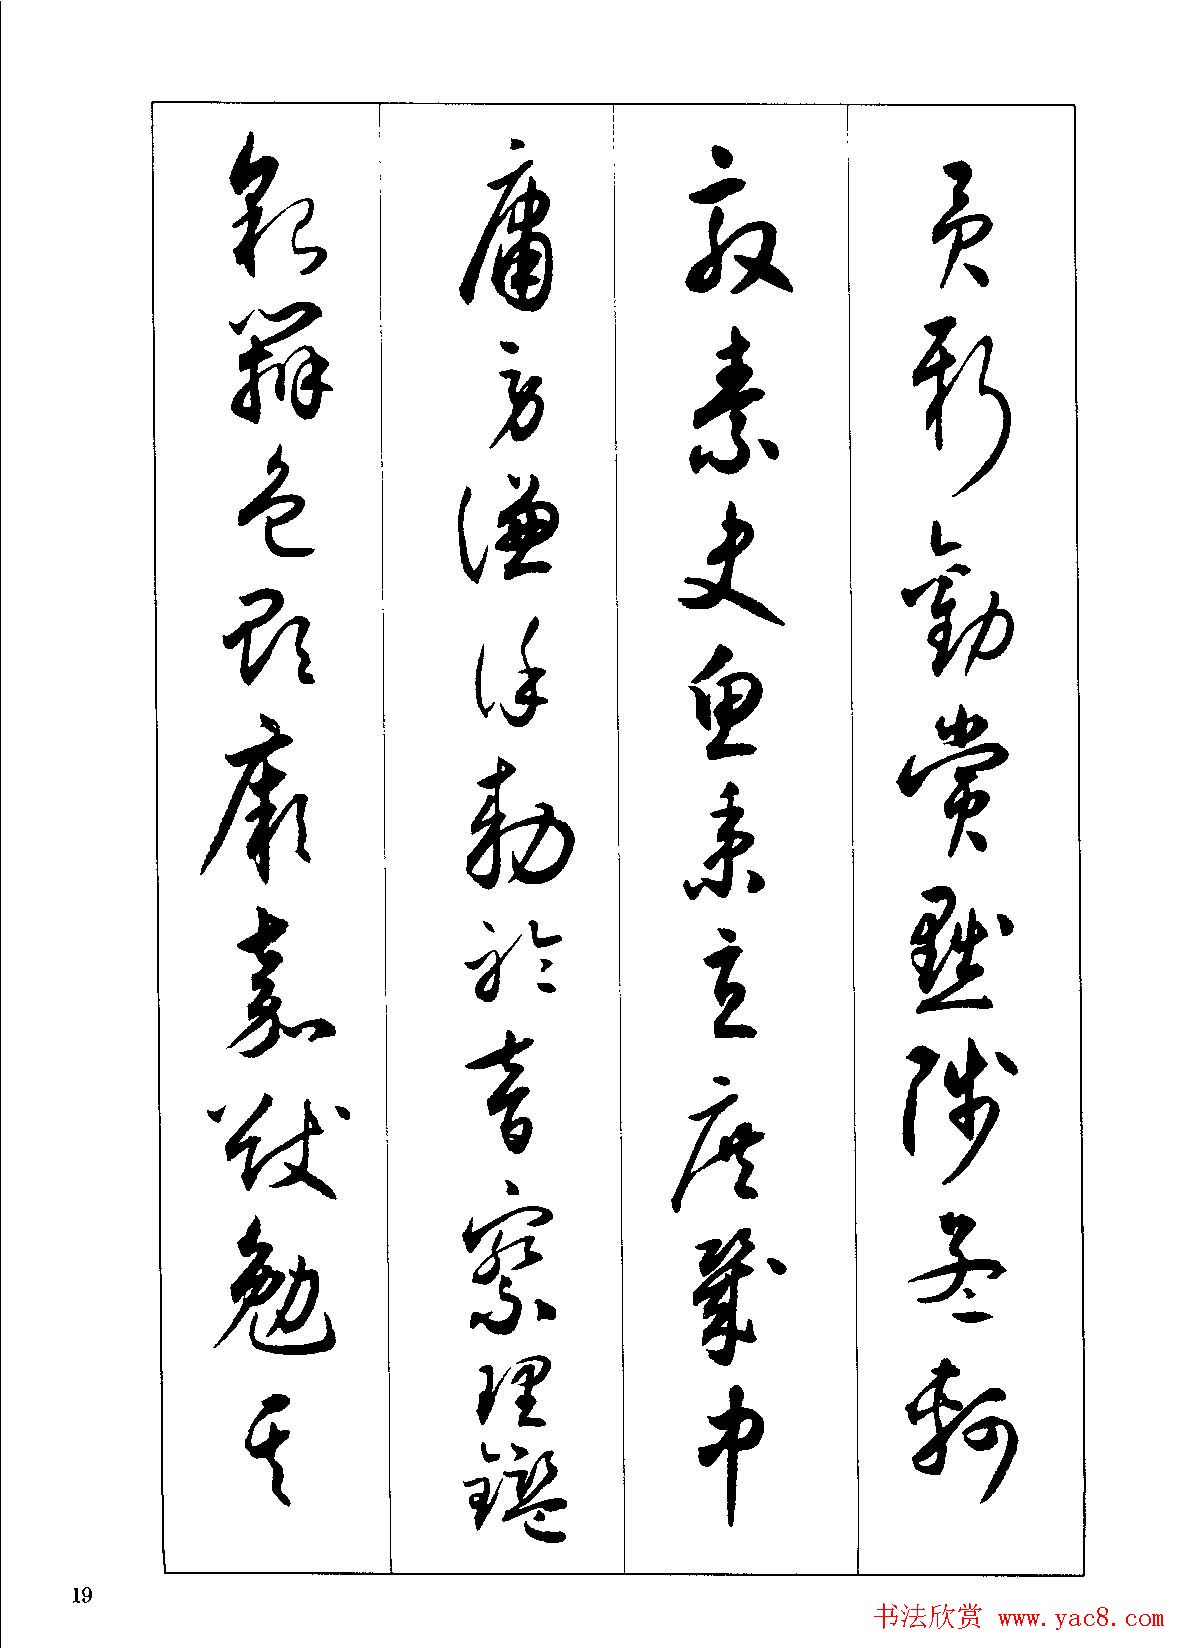 貢新勸賞黜陟孟軻
敦素史魚秉直庶幾中
庸勞謙謹勅聆音察理鑑
貌辨色貽厥嘉猷勉其
19
书法欣赏 www.yac8.com